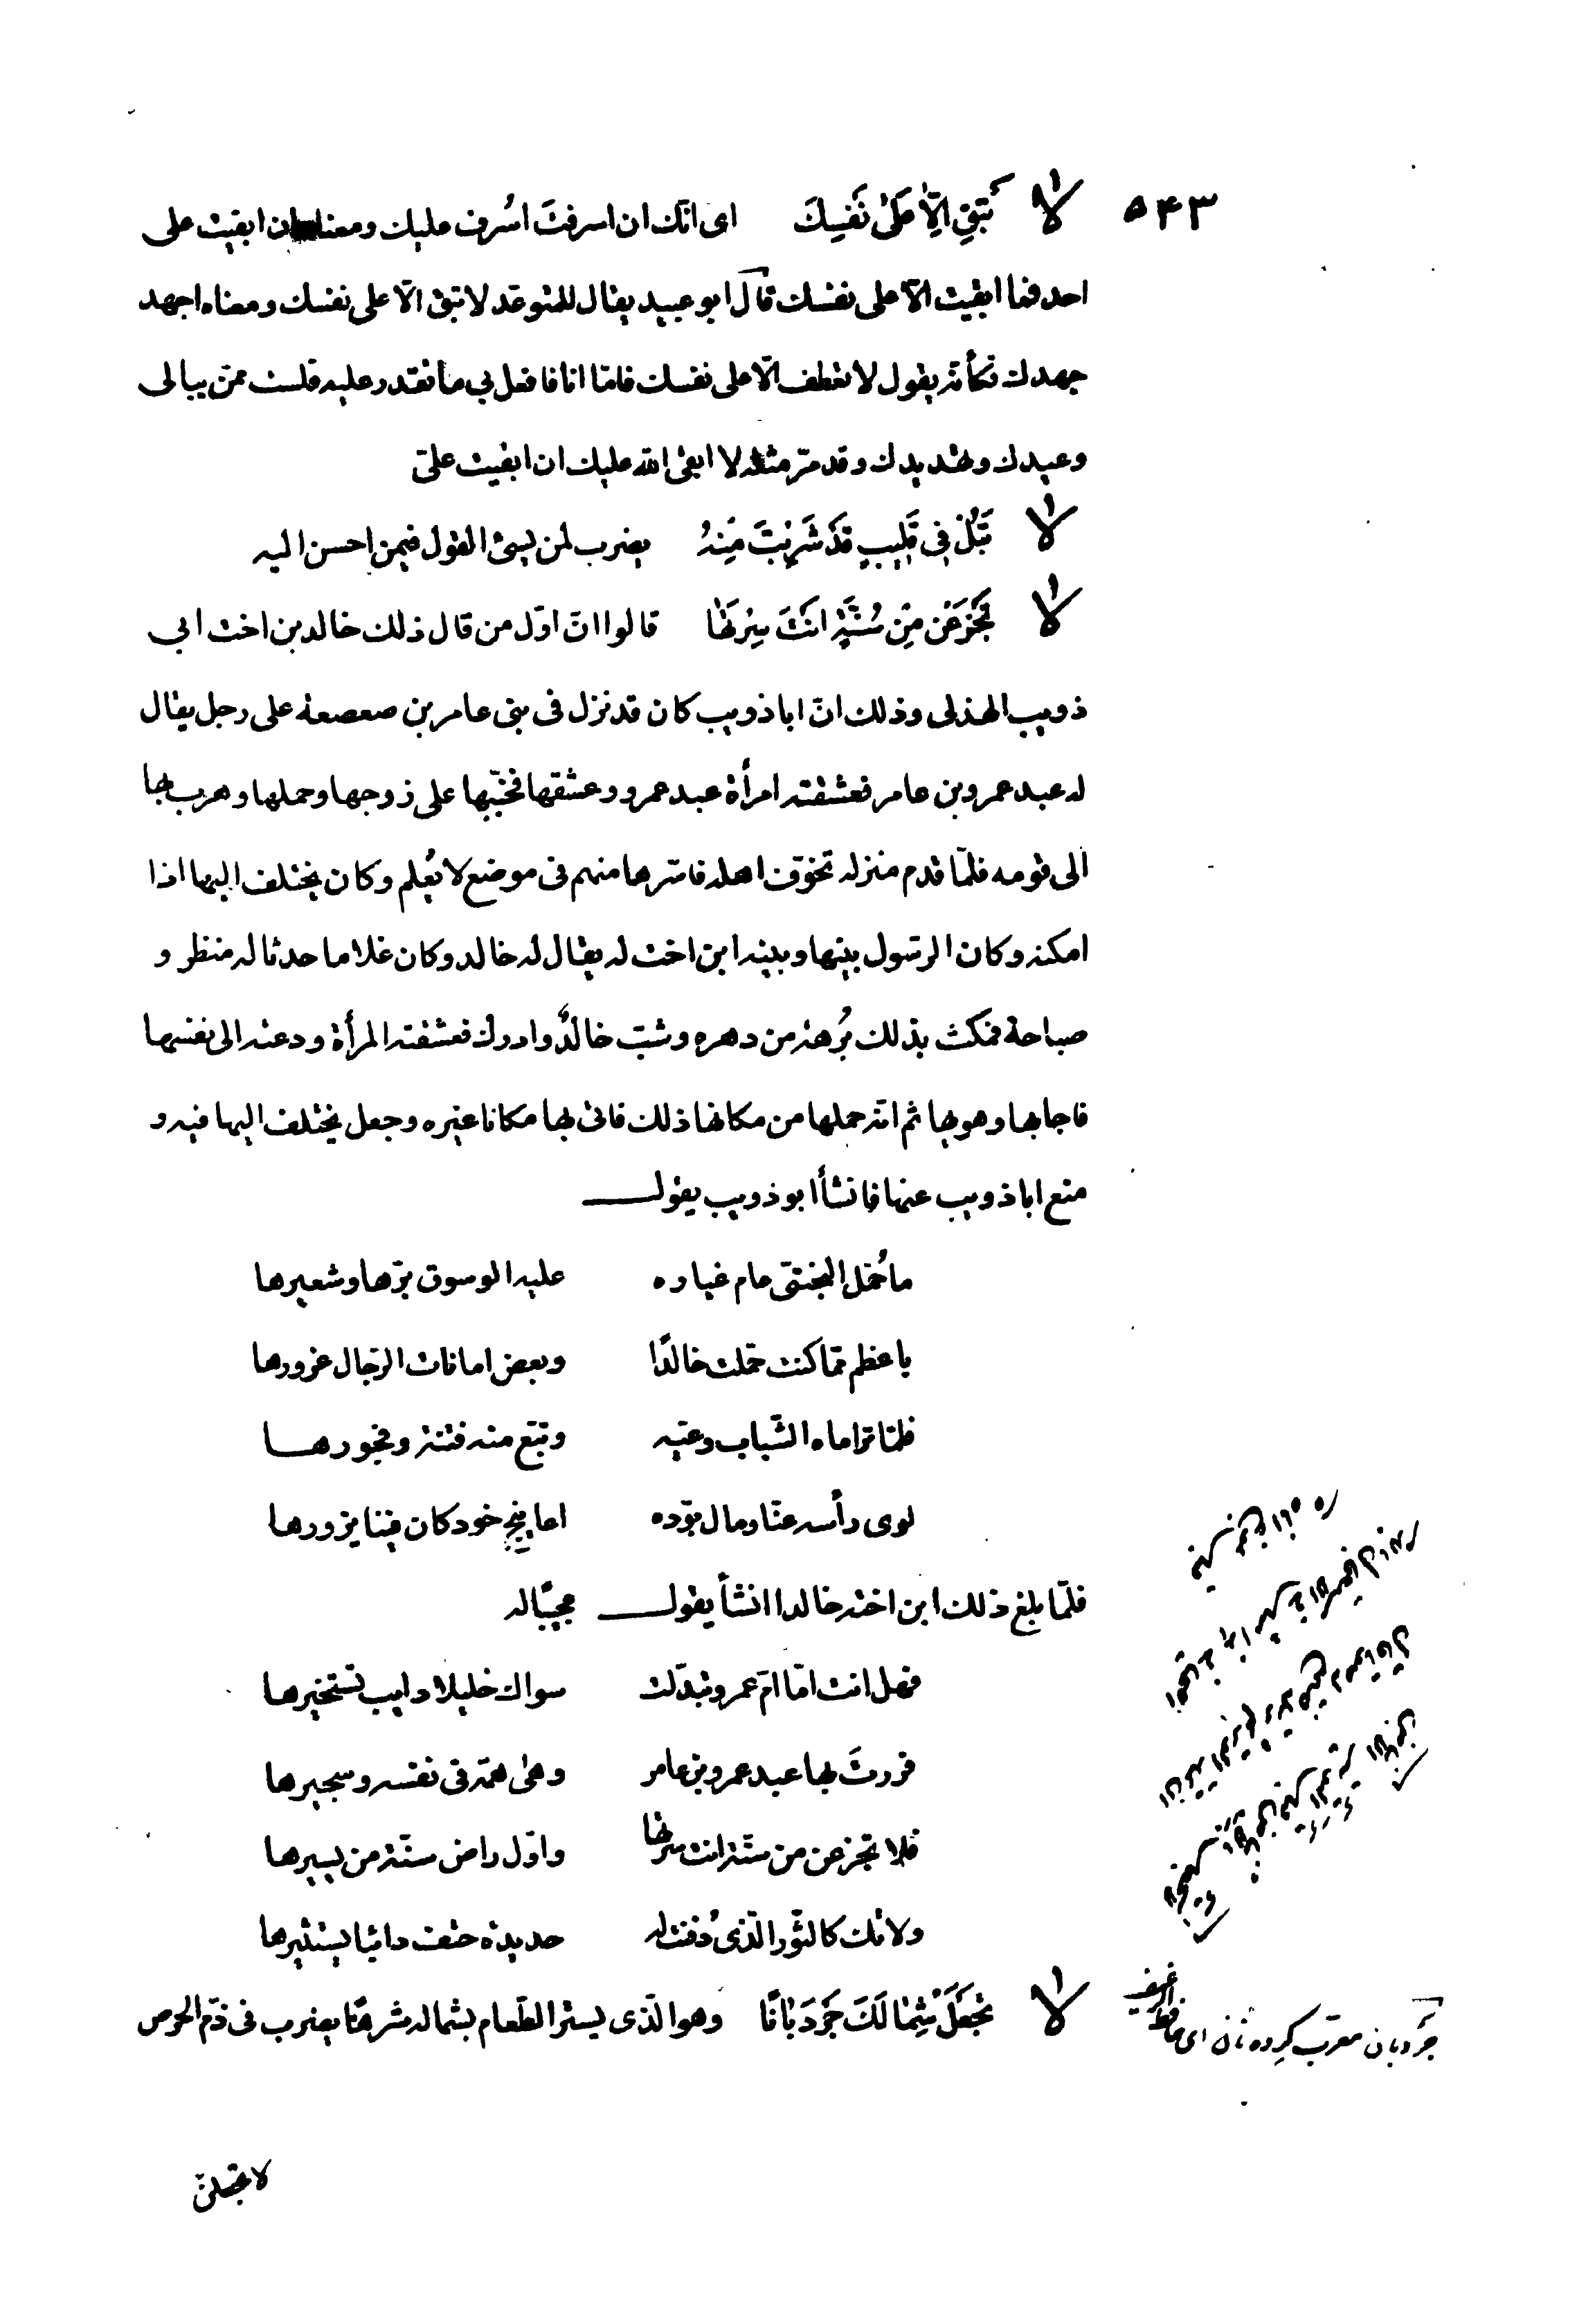 ٥٤٣
لا تُبْقِ اِلَّا عَلىٰ نَفْسِكَ اى انّك ان اسرفتَ اُسْرف عليك ومعناه ان ابقيت على
احد فما ابقيت الّا على نفسك قال ابو عبيد يقال للمتوعّد لا تبق الّا على نفسك ومعناه اجهد
جهدك فكأنّه يقول لا تعطف الّا على نفسك فامّا انا فافعل بى ما تقدر عليه فلست ممّن يبالى
وعيدك وتهديدك وقد مرّ مثله لا ابقى الله عليك ان ابقيت علىّ
لا تَبُلْ فِى قَلِيبٍ قَدْ شَرِبْتَ مِنْهُ يضرب لمن يسئ القول فيمن احسن اليه
لا تَجْزَعَنْ مِنْ سُنَّةٍ اَنْتَ سِرْتَهَا قالوا انّ اوّل من قال ذلك خالد بن اخت ابى
ذويب الهذلى وذلك انّ ابا ذويب كان قد نزل فى بنى عامر بن صعصعة على رجل يقال
له عبد عمرو بن عامر فعشقته امرأة عبد عمرو وعشقها فخبّبها على زوجها وحملها وهرب بها
الى قومه فلمّا قدم منزله تخوّف اهله فاسّرها منهم فى موضع لا يُعلم وكان يختلف اليها اذا
امكنه وكان الرّسول بينها وبينه ابن اخت له يقال له خالد وكان غلاما حدثا له منظر و
صباحة فمكث بذلك بُرهة من دهره وشبّ خالدٌ وادرك فعشقته المرأة ودعته الى نفسها
فاجابها وهويها ثم انّه حملها من مكانها ذلك فاتى بها مكانا غيره وجعل يختلف اليها فيه و
منع ابا ذويب عنها فانشأ ابو ذويب يقول
ما حُمّل البختىّ عام غياره عليه الوسوق برّها وشعيرها
باعظم ممّا كنت حمّلت خالدًا وبعض امانات الرّجال غرورها
فلمّا تراماه الشّباب وغيّه وتبّع منه فتنة وفجورها
لوى رأسه عنّا ومال بودّه اغانيج خود كان فينا يزورها
فلمّا بلغ ذلك ابن اخته خالدا انشأ يقول مجيبًا له
فهل انت امّا امّ عمرو تبدّلت سواك خليلا دايب تستخيرها
فررتَ بها عبد عمرو بن عامر وهى همّه فى نفسه وسجيرها
فلا تجزعن من سنّة انت سرتها واوّل راض سنّة من يسيرها
ولا تك كالثّور الّذى دُفنت له حديدة حتف دائبا يستثيرها
لا تَجْعَلْ شِمَالَكَ جَرْدَبَانًا وهو الّذى يستر الطّعام بشماله شرهًا يضرب فى ذمّ الحرص
جَردبان معرّب كرده نان اى حافظ الرغيف
لا تجعلنّ